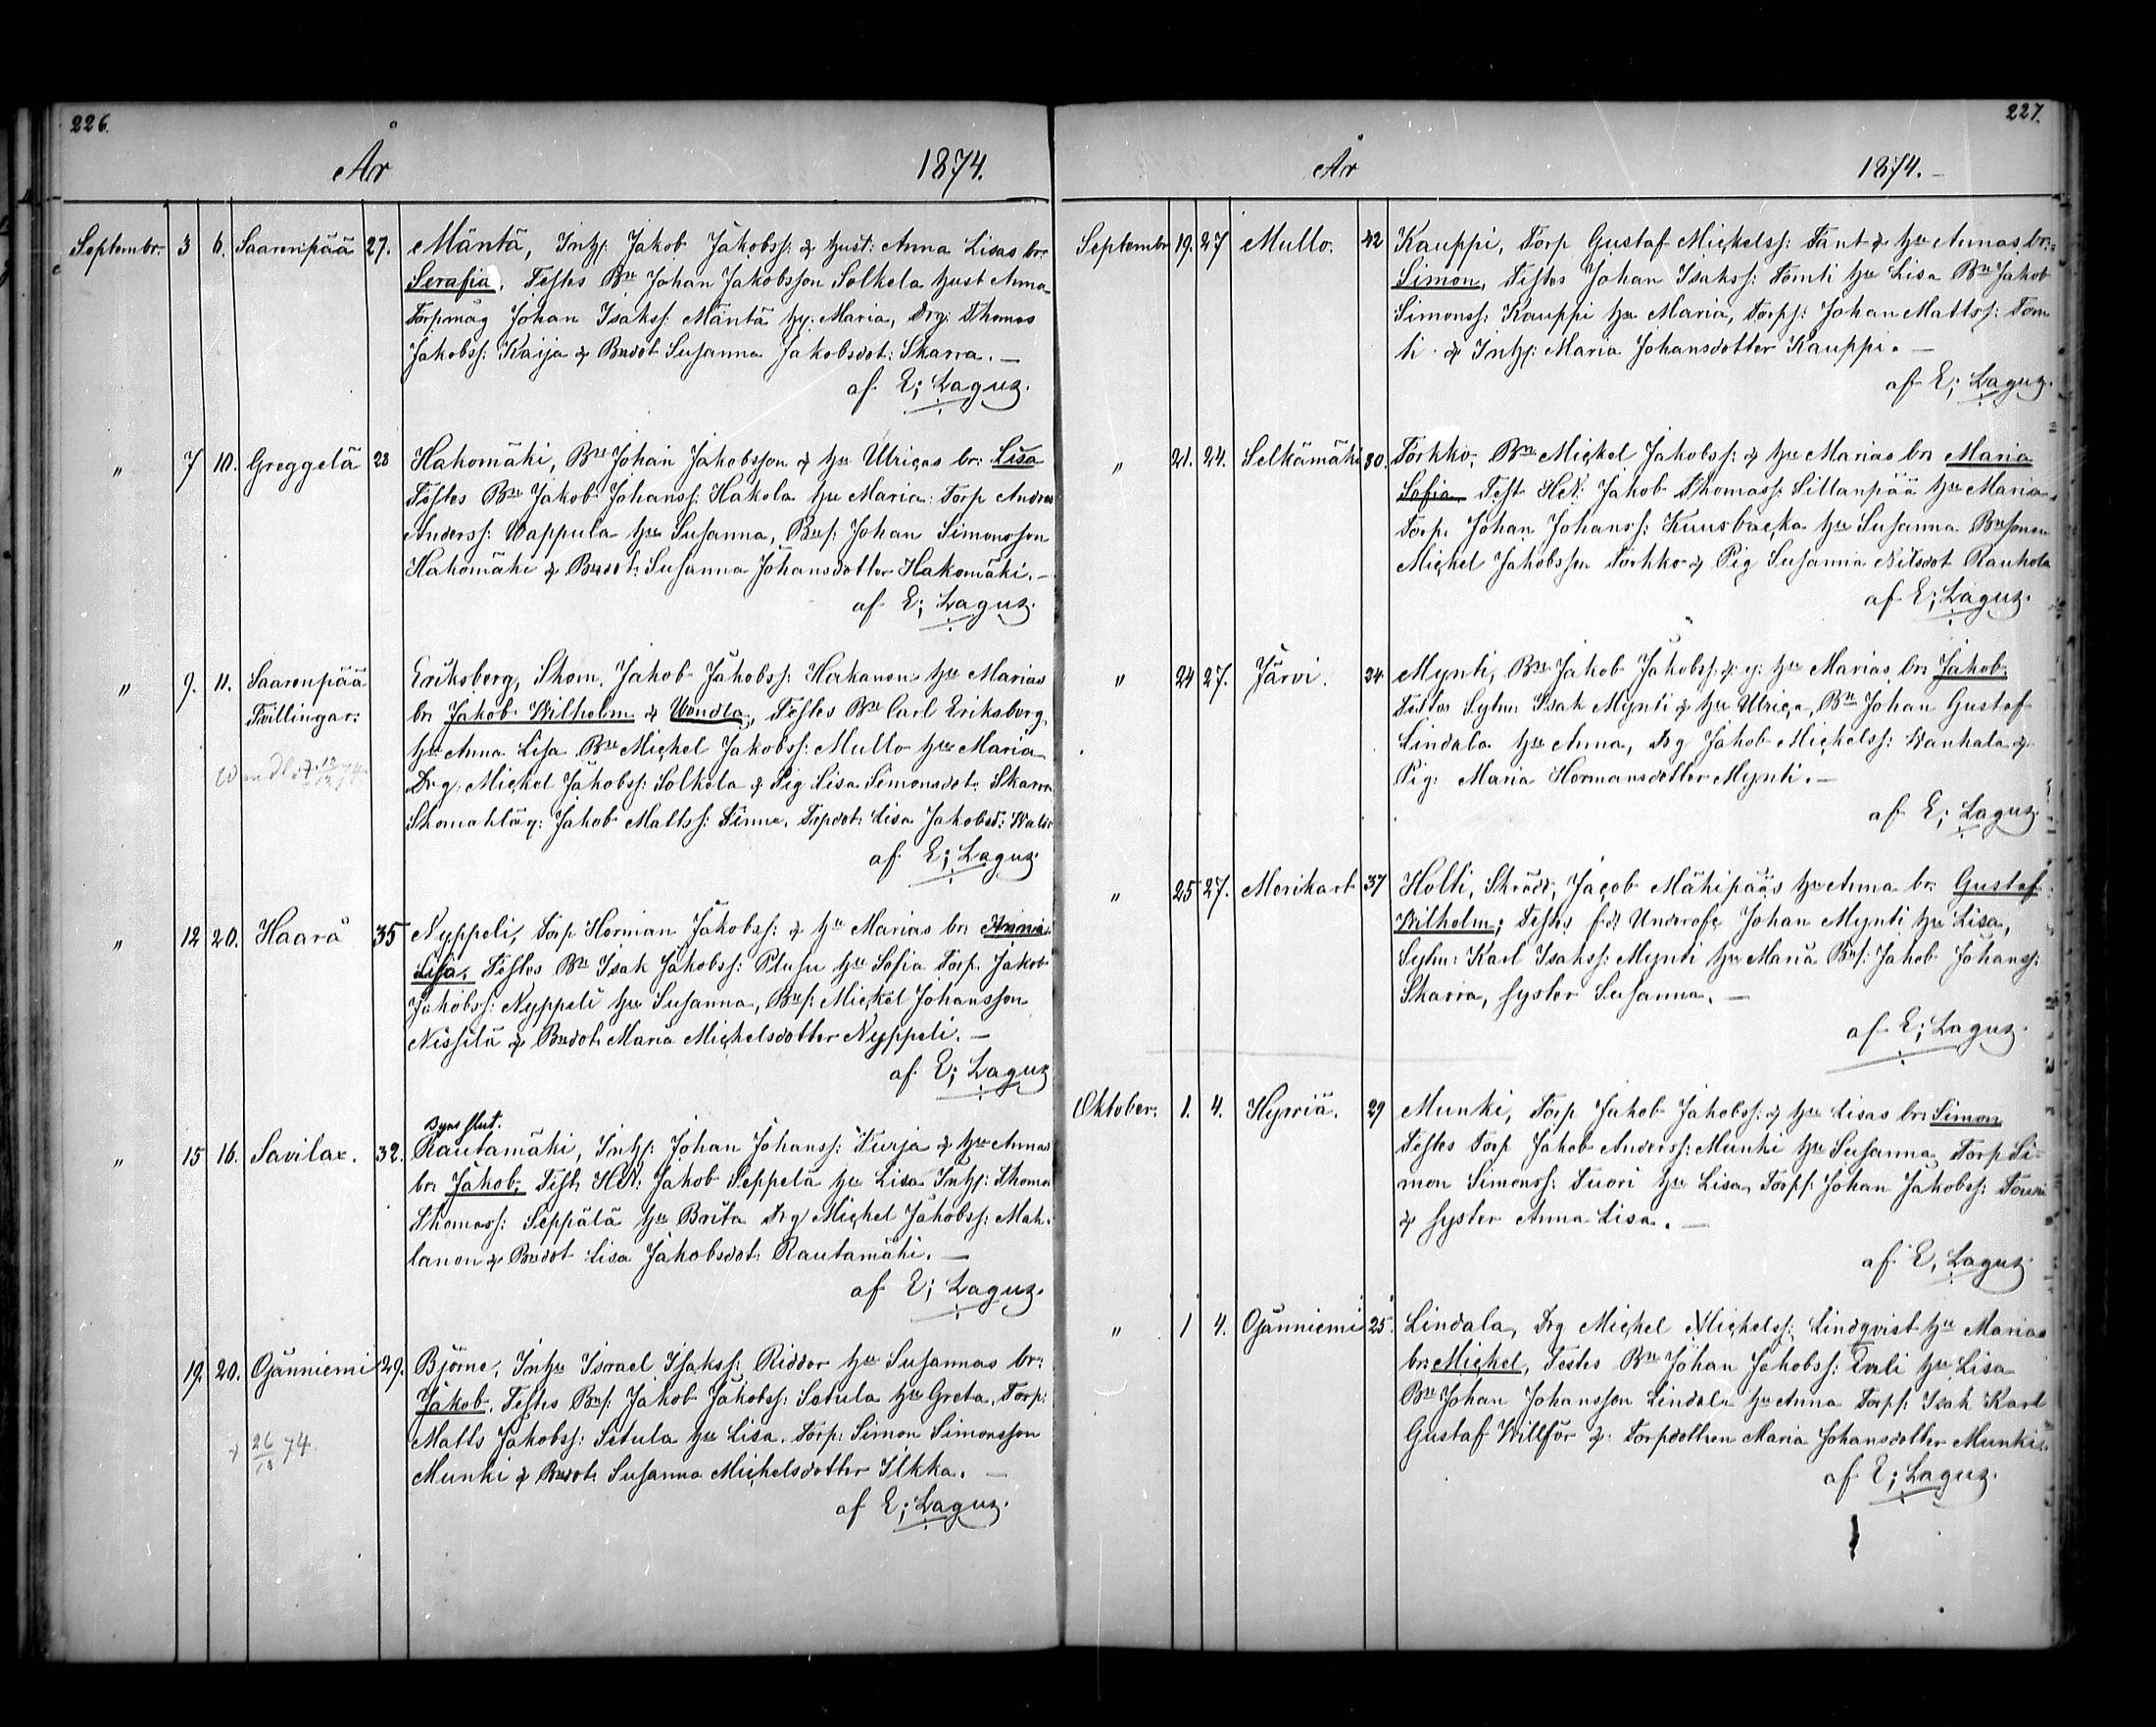 226.
År 1874.
Septembr. 3 6. Saarenpää 27. Mäntä, Inhs. Jakob Jakobss: & hust: Anna Lisas br:
Serafia. Testes Bn Johan Jakobsson Solkela hust Anna
Torpmåg Johan Isakss: Mäntä hu: Maria, Drg: Thomas
Jakobss: Kaija & Bndot Susanna Jakobsdot: Skarra. —
af E; Laguz.
" 7 10. Greggelä 28 Hakomäki, Bn Johan Jakobsson & hu Ulricas br: Lisa
Testes Bn Jakob Johanss: Hakola hu Maria: Torp Anders
Anderss: Wappula hu Susanna, Bns: Johan Simonsson
Hakomäki & Bndot: Susanna Johansdotter Hakomäki. —
af E; Laguz.
" 9. 11. Saarenpää Eriksberg, Skom. Jakob Jakobss: Hakanen hu Marias
Tvillingar: br: Jakob Wilhelm & Wendla, Testes Bn Carl Eriksberg
hu Anna Lisa Bn Mickel Jakobss: Mullo hu Maria
Drg: Mickel Jakobss: Solkela & Pig Lisa Simonsdot: Skarra
Skomakläg: Jakob Mattss: Finne. Torpdot: Lisa Jakobsd:
af E; Laguz.
" 12 20. Haarå 35 Nyppeli, Torp Herman Jakobss: & hu Marias br: Anna
Lisa. Testes Bn Isak Jakobss: Plusu hu Sofia Torp. Jakob
Jakobss: Nyppeli hu Susanna, Bns: Mickel Johansson
Nissilä & Bndot: Maria Mickelsdotter Nyppeli. —
af E; Laguz
Byns slut.
" 15 16. Savilax. 32. Rautamäki, Inhs: Johan Johanss: Turja & hu Annas
br: Jakob, Test: Hel: Jakob Seppelä hu Lisa Inhs: Thomas
Thomass: Seppälä hu Brita Drg Mickel Jakobss: Mah-
lanen & Bndot Lisa Jakobsdot: Rautamäki. —
af E; Laguz.
19. 20. Ojänniemi 29. Björne, Inhs Israel Isakss: Riddar hu Susannas br:
Jakob. Testes Bns: Jakob Jakobss: Setula hu Greta, Torp:
Matts Jakobss: Setula hu Lisa. Torp: Simon Simonsson
Munki & Bndot: Susanna Mickelsdotter Ilkka. —
af E; Laguz.
227.
År 1874. —
Septembr 19. 27 Mullo. 42 Kauppi, Torp Gustaf Mickelss: Tant & hu Annas br:
Simon, Testes Johan Isakss: Tomti hu Lisa Bn Jakob
Simonss: Kauppi hu Maria, Torps: Johan Mattss: Tom
ti & Inhs: Maria Johansdotter Kauppi. —
af E; Laguz.
" 21. 24. Selkämäki 30. Törkko, Bn Mickel Jakobss: & hu Marias br: Maria
Sofia. Test: Hel: Jakob Thomass: Sillanpää hu Maria,
Torp. Johan Johanss: Kuusbacka hu Susanna Bnsonen
Mickel Jakobsson Törkko & Pig Susanna Nilsdot Rauhola
af E; Laguz.
" 24 27. Järvi. 34. Mynti, Bn Jakob Jakobss: & hu Marias br: Jakob.
Testes Sytn: Isak Mynti & hu Ulrica, Bn Johan Gustaf
Lindala hu Anna, Drg Jakob Mickelss: Wanhala &
Pig: Maria Hermansdotter Mynti. —
af E; Laguz.
" 25 27. Merikart 37 Holti, Skrädd, Jacob Mähipääs hu Anna br: Gustaf
Wilhelm; Testes f.d. Underofc Johan Mynti hu Lisa,
Sytn: Karl Isakss: Mynti hu Maria Bns: Jakob Johanss:
Skarra, syster Susanna. —
af E; Laguz.
Oktober. 1. 4. Hyrriä. 29 Munki, Torp Jakob Jakobss: & hu Lisas br: Simon
Testes Torp Jakob Anderss: Munki hu Susanna, Torp Si-
mon Simonss: Tuori hu Lisa, Torps: Johan Jakobss:
& syster Anna Lisa. —
af E, Laguz.
" 1 4. Ojänniemi 25. Lindala, Drg Mickel Mickelss: Lindqvist hu Marias
br: Mickel, Testes Bn Johan Jakobss: hu Lisa
Bn Johan Johansson Lindala hu Anna Torps: Isak Karl
Gustaf Willför & Torpdottren Maria Johansdotter Munki.
af E; Laguz.